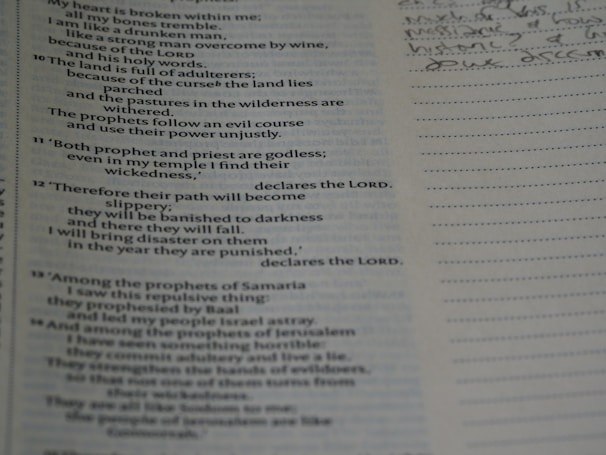 My heart is broken within me;
all my bones tremble.
I am like a drunken man,
like a strong man overcome by wine,
because of the LORD
and his holy words.
10 The land is full of adulterers;
because of the curseᵇ the land lies
parched
and the pastures in the wilderness are
withered.
The prophets follow an evil course
and use their power unjustly.
11 ‘Both prophet and priest are godless;
even in my temple I find their
wickedness,’
declares the LORD.
12 ‘Therefore their path will become
slippery;
they will be banished to darkness
and there they will fall.
I will bring disaster on them
in the year they are punished,’
declares the LORD.
13 ‘Among the prophets of Samaria
I saw this repulsive thing:
they prophesied by Baal
and led my people Israel astray.
14 And among the prophets of Jerusalem
I have seen something horrible:
they commit adultery and live a lie.
They strengthen the hands of evildoers,
so that not one of them turns from
their wickedness.
They are all like Sodom to me;
the people of Jerusalem are like
Gomorrah.’